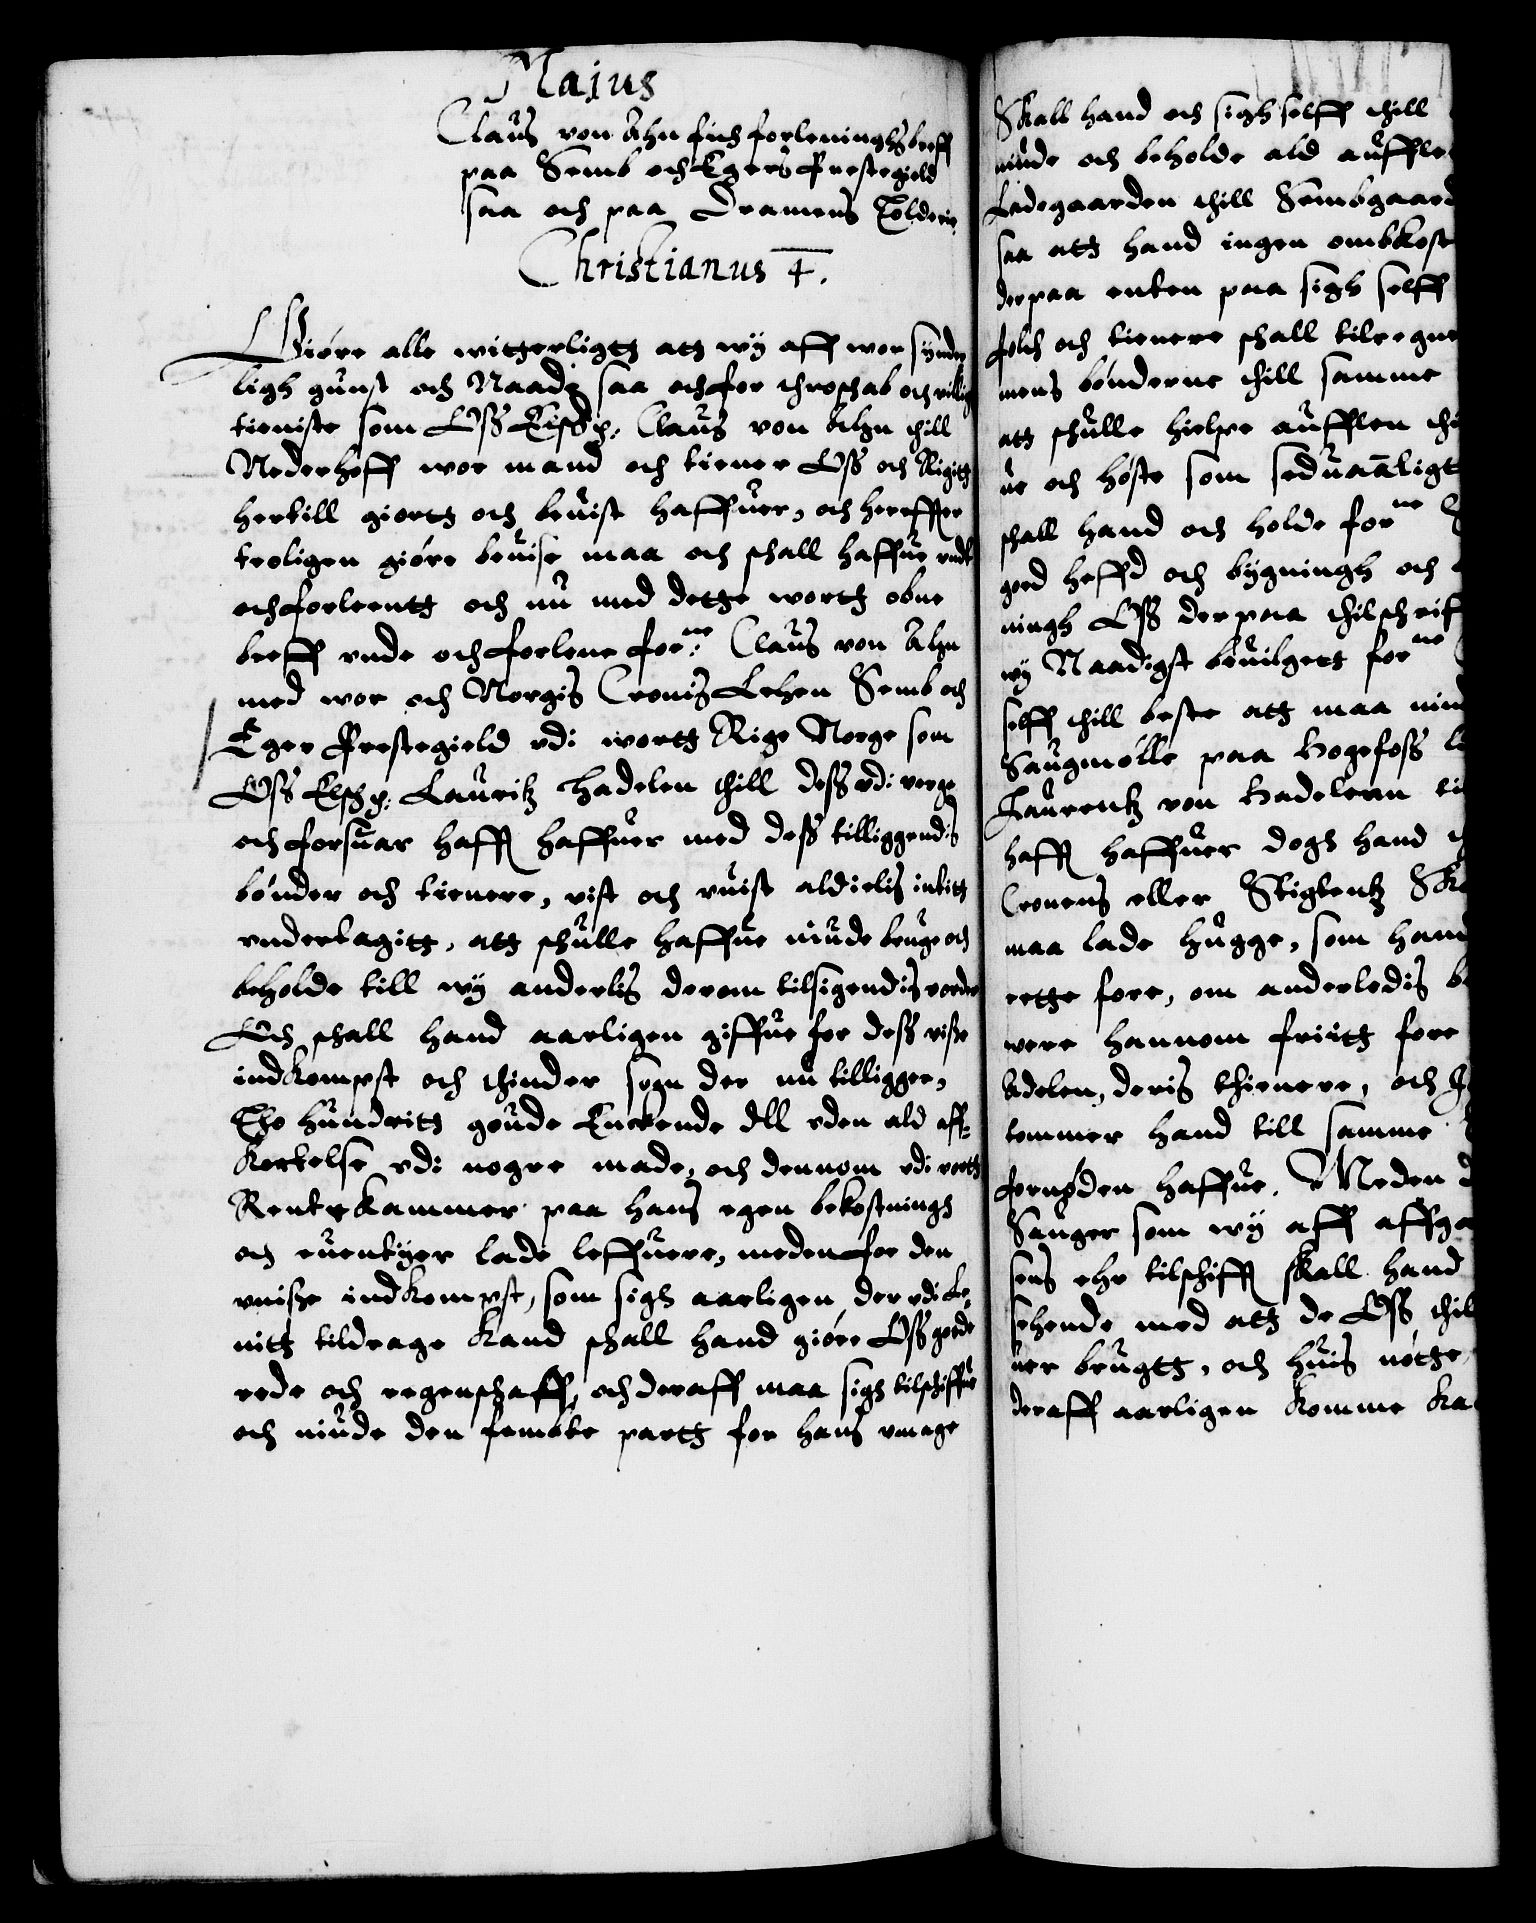 Majus
Claus von Ahn fich forleninghsbreff
paa Semb och Egers Prestegield
saa och paa Dramens Tolderie.
Christianus 4.
Giöre alle witterligtt att wy aff wor synder
ligh gunst och Naade saa och for throschab och villig
tieniste som Oss Elsch: Claus von Ahn thill
Nederhoff wor mand och tiener Oss och Rigitt
hertill giortt och beuist haffuer, och hereffter
troligen giöre beuise maa och schall haffue undt
och forleentt och nu med dette wortt obne
breff unde och forlene forne: Claus von Ahn
med wor och Norgis Cronis Lehen Semb och
Eger Prestegield udi wortt Rige Norge som
Oss Elsch: Lauritz Hadelen thill dess udi verge
och forsuar hafft haffuer med dess tilliggendis
bönder och tienere, vist och uuist aldielis intitt
undertagitt, att schulle haffue niude bruge och
beholde till wy anderlis derom tilsigendis vorder
Och schall hand aarligen giffue for dess visse
indkompst och thinder sogn der nu tilligger,
Tho hundritt goude Enckende dll uden ald aff-
kortelse udi nogre made, och dennom udi vortt
Rentekammer paa hans egen bekostningh
och euentyer lade leffuere, meden for den
uuisse indkompst, som sigh aarligen der udi Le-
nitt tildrage kand schall hand giöre Oss goede
rede och regenschaff, och deraff maa sigh tilschiffte
och niude den fembte partt for hans umage
Skall hand och sigh selff thill
niude och beholde ald auffle
Ladegaarden thill Sembgaard
saa att hand ingen ombkost
derpaa enten paa sigh selff
folch och tienere schall tilregne
mens bönderne thill samme
att schulle hielpe aufflen thi
ue och höste som seduanligt
schall hand och holde forne
goed heffd och bygningh och
ningh Oss derpaa thilschrif
wy Naadigst beuilgett forne
selff thill beste att maa niud
Saugmölle paa Hogefoss
Laurentz von Hadelenn ti
hafft haffuer dogh hand
Cronens eller Stigtentz Sko
maa lade hugge, som hand
rette fore, om anderledis be
were hannom friitt fore
Adelen, deris thienere, och
tommer hand till samme
fornøden haffue. Meden
Sauger som wy aff affga
sens ehr tilschifft skall hand
sehende med att de Oss thil
uer brugtt, och huis nötte
deraff aarligen komme ka